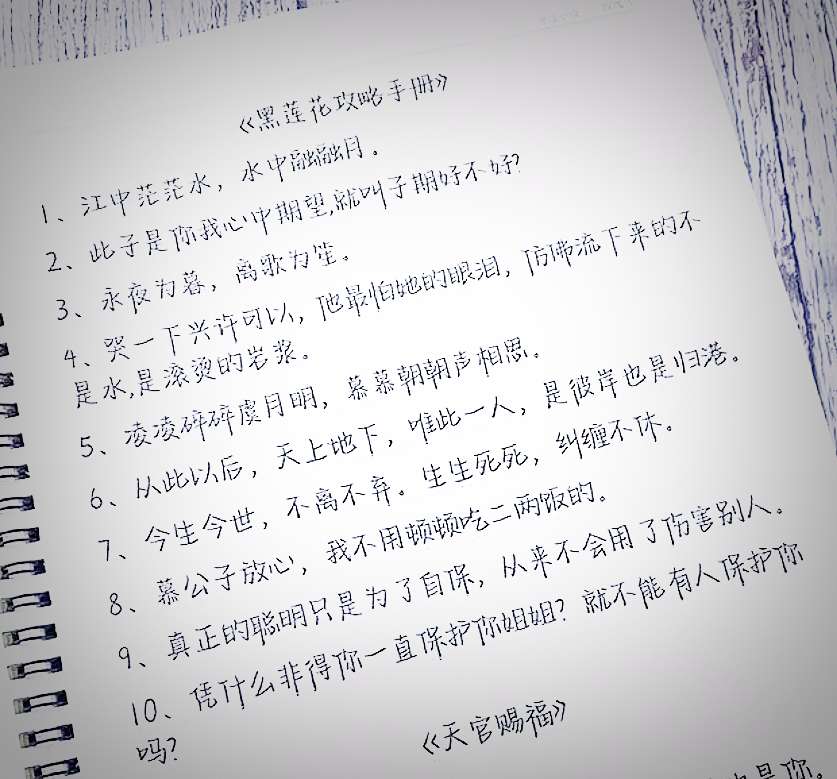 《黑莲花攻略手册》
1、江中茫茫水，水中融融月。
2、此子是你我心中期望,就叫子期好不好?
3、永夜为暮，离歌为笙。
4、哭一下兴许可以，他最怕她的眼泪，仿佛流下来的不
是水,是滚烫的岩浆。
5、凌凌碎碎虞月明，慕慕朝朝声相思。
6、从此以后，天上地下，唯此一人，是彼岸也是归港。
7、今生今世，不离不弃。生生死死，纠缠不休。
8、慕公子放心，我不用顿顿吃二两饭的。
9、真正的聪明只是为了自保，从来不会用了伤害别人。
10、凭什么非得你一直保护你姐姐？就不能有人保护你
吗？
《天官赐福》
也是你.